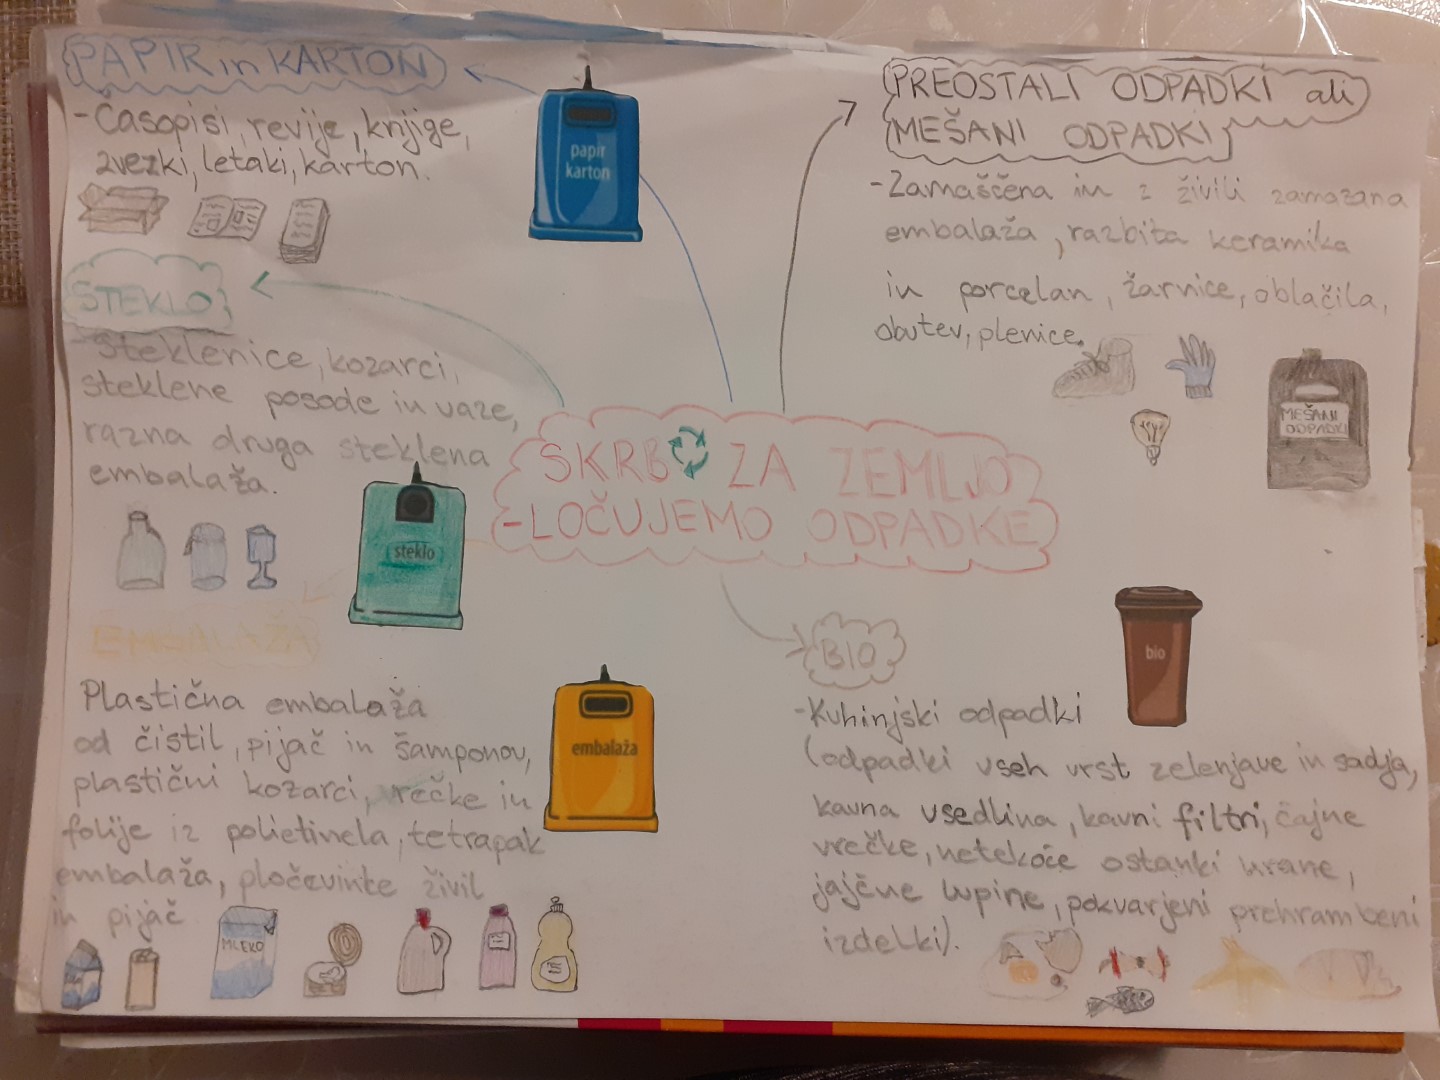 PAPIR in KARTON
- Časopisi, revije, knjige,
zvezki, letaki, karton.
papir
karton
PREOSTALI ODPADKI ali
MEŠANI ODPADKI
- Zamaščena in z živili zamazana
embalaža, razbita keramika
in porcelan, žarnice, oblačila,
obutev, plenice.
MEŠANI
ODPADKI
STEKLO
- Steklenice, kozarci,
steklene posode in vaze,
razna druga steklena
embalaža.
steklo
SKRB ZA ZEMLJO
- LOČUJEMO ODPADKE
EMBALAŽA
Plastična embalaža
od čistil, pijač in šamponov,
plastični kozarci, vrečke in
folije iz polietinela, tetrapak
embalaža, pločevinke živil
in pijač
embalaža
MLEKO
BIO
bio
- Kuhinjski odpadki
(odpadki vseh vrst zelenjave in sadja,
kavna usedlina, kavni filtri, čajne
vrečke, netekoče ostanki hrane,
jajčne lupine, pokvarjeni prehrambeni
izdelki).